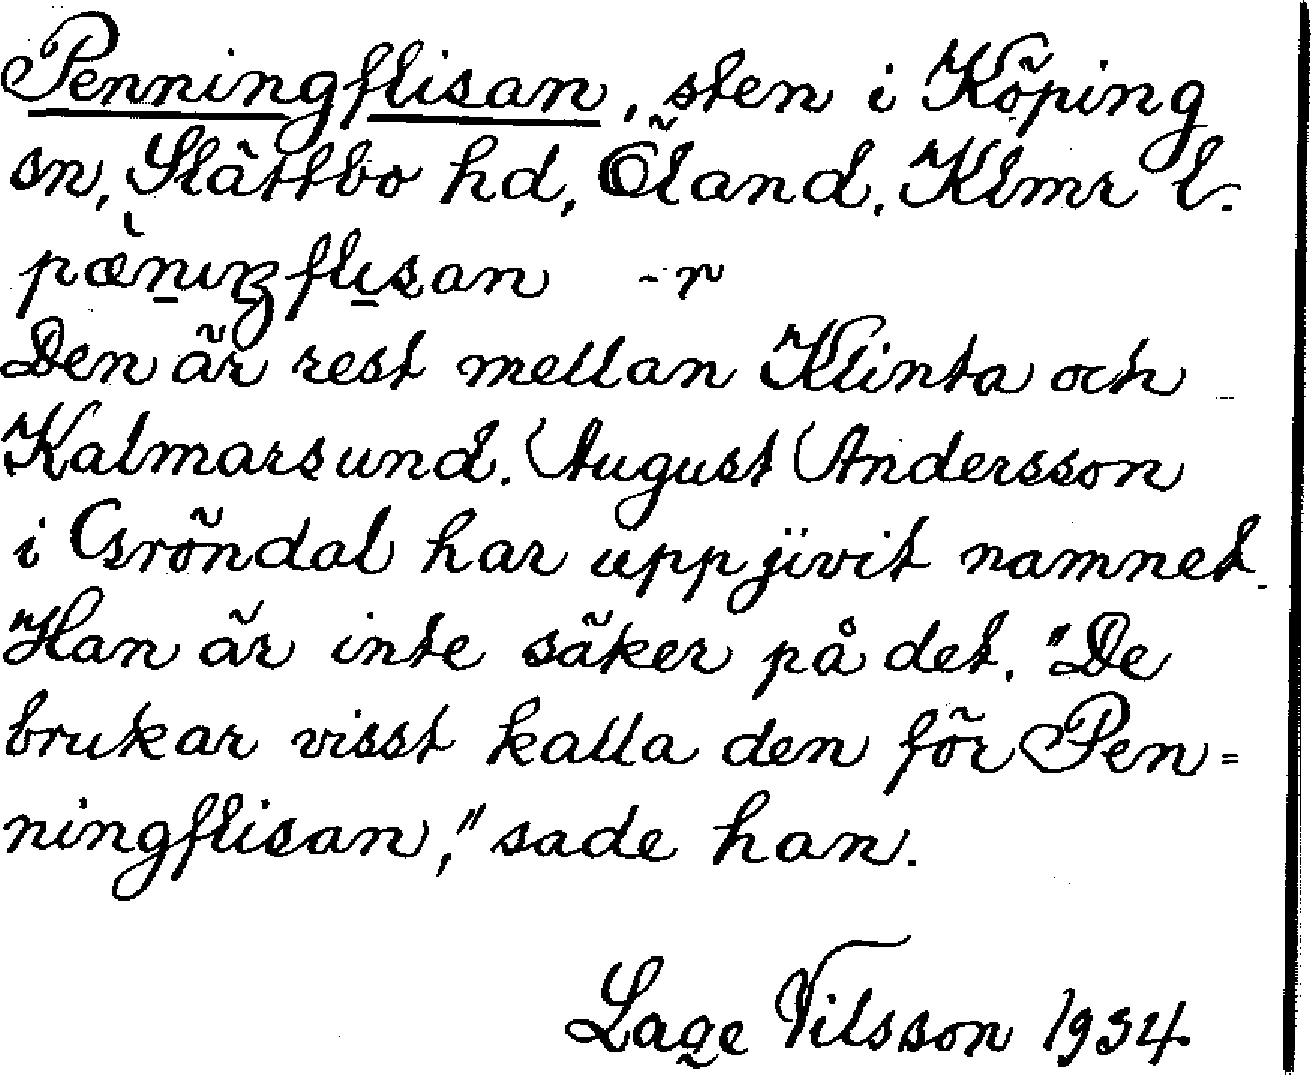 Penningflisan, sten i Köping
sn, Slättbo hd, Öland, Klmr l.
-r
Den är rest mellan Klinta och
Kalmarsund. August Andersson
i Gröndal har uppjivit namnet.
Han är inte säker på det. "De
brukar visst kalla den för Pen=
ningflisan," sade han.
Lage Nilsson 1934.